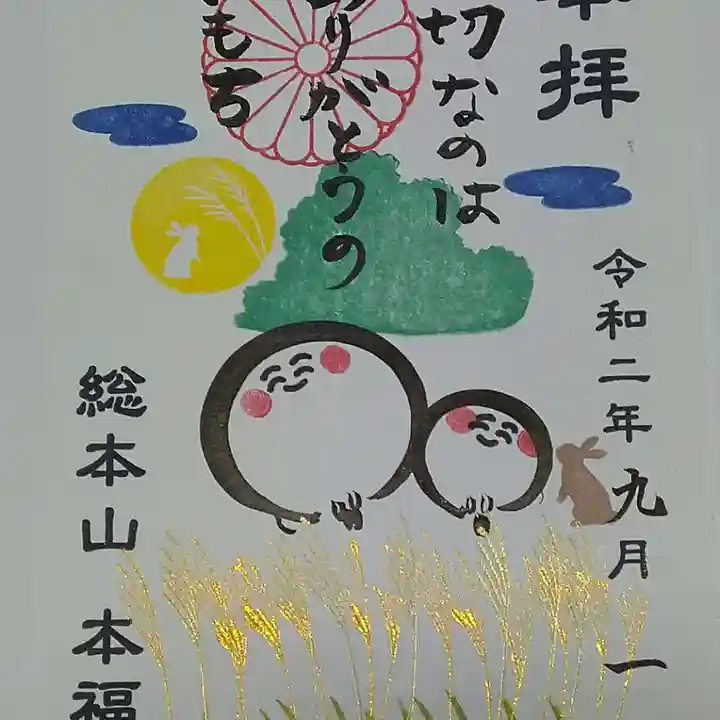 拝
令和二年九月一
切なのは
ありがとうの
もち
総本山 本福